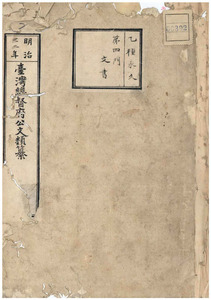 明治
年
臺灣總督府公文類纂
乙種永久
第四門
文書